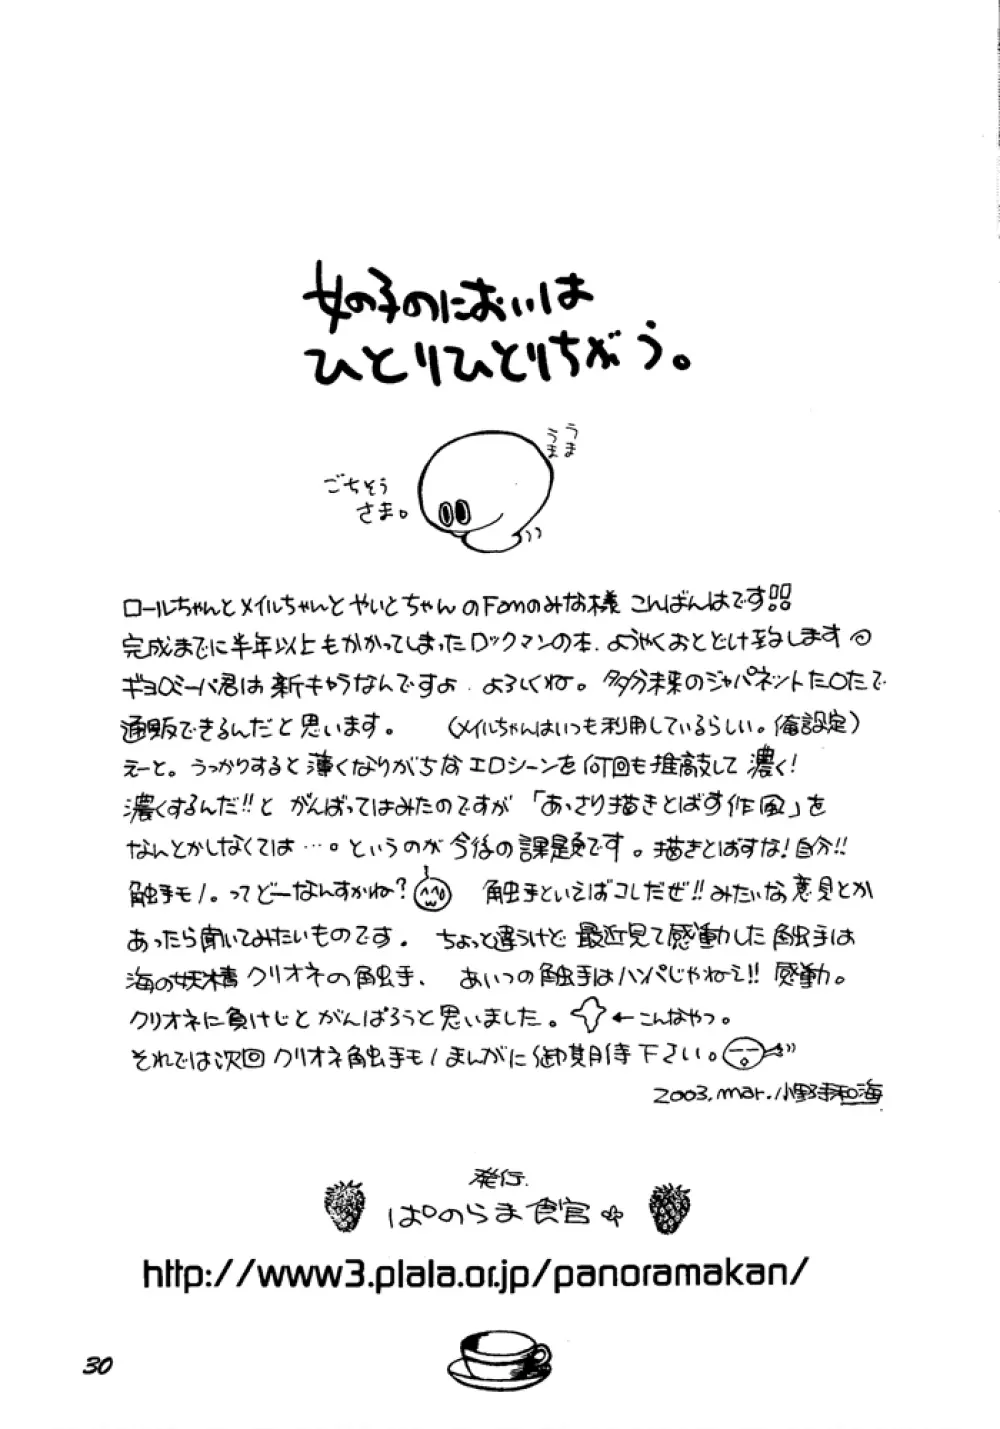 女の子のにおいは
ひとりひとりちがう。
うまうま
ごちそう
さま。
ロールちゃんとメイルちゃんとやいとちゃんのFanのみな様 こんばんはです!!
完成までに半年以上もかかってしまったロックマンの本、ようやくおとどけ致します
ギョロビーバ君は新キャラなんですよ よろしくね。多分未来のジャパネットた○たで
通販できるんだと思います。 (メイルちゃんはいつも利用しているらしい。俺設定)
えーと。うっかりすると薄くなりがちなエロシーンを何回も推敲して濃く!
濃くするんだ!!と がんばってはみたのですが「あっさり描きとばす作風」を
なんとかしなくては…。というのが今後の課題です。描きとばすな!自分!!
触手モノ。ってどーなんすかね? 触手といえばコレだぜ!!みたいな意見とか
あったら聞いてみたいものです。ちょっと違うけど最近見て感動した触手は
海の妖精クリオネの触手、 あいつの触手はハンパじゃねェ!!感動。
クリオネに負けじとがんばろうと思いました。 ←こんなやつ。
それでは次回クリオネ触手モノまんがに御期待下さい。
2003.mar.小野手和海
発行
ぱのらま食官
http://www3.plala.or.jp/panoramakan/
30